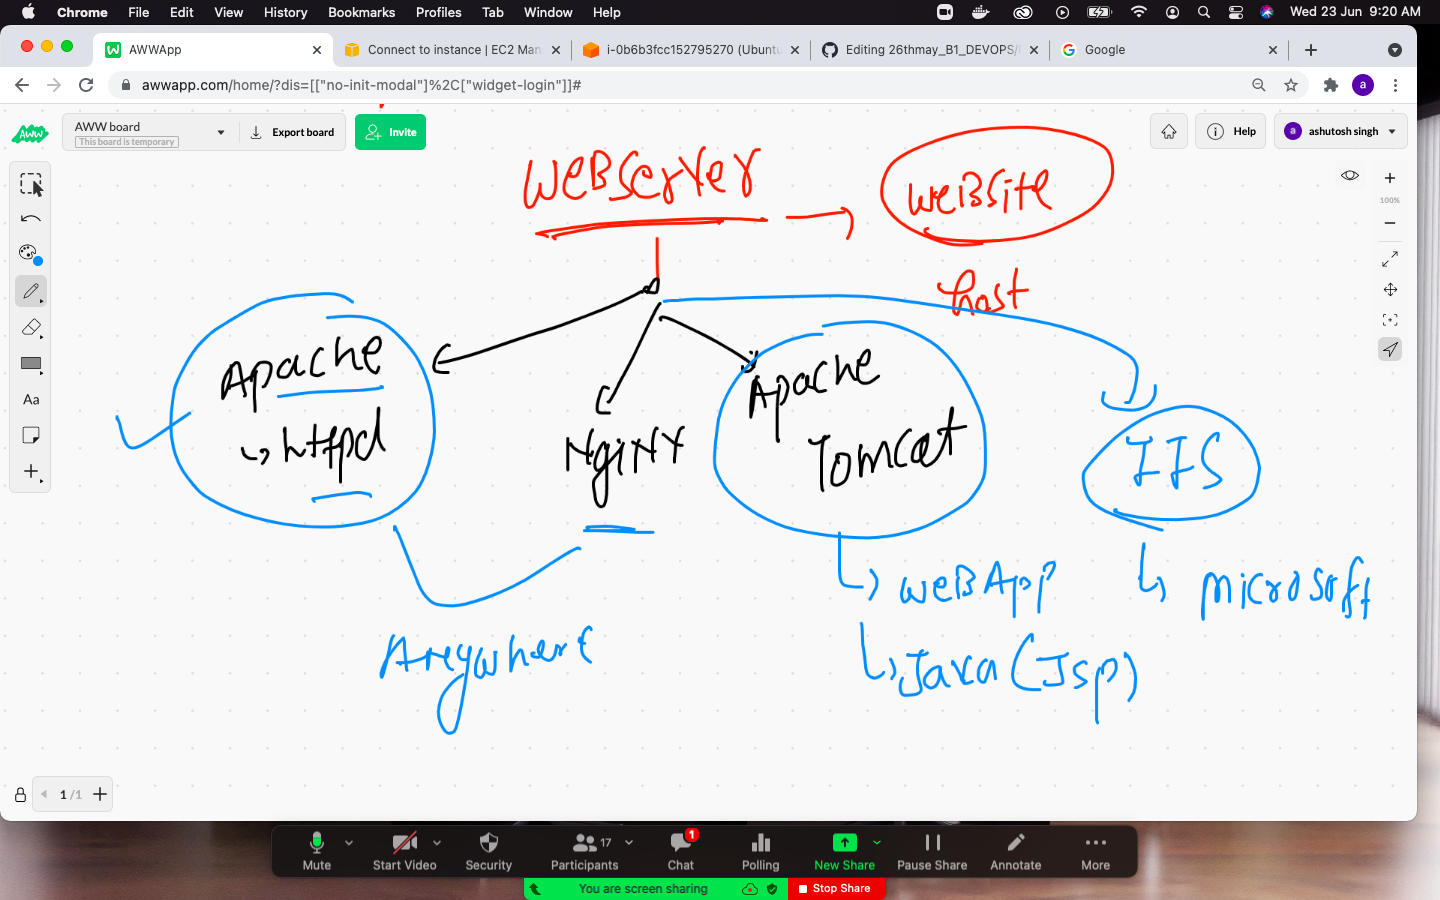 Chrome File Edit View History Bookmarks Profiles Tab Window Help Wed 23 Jun 9:20 AM
AWWApp Connect to instance | EC2 Man i-0b6b3fcc152795270 (Ubuntu Editing 26thmay_B1_DEVOPS/ Google
awwapp.com/home/?dis=[["no-init-modal"]%2C["widget-login"]]# a
AWW AWW board Export board Invite Help a ashutosh singh
This board is temporary
WEBSERVER WEBSITE
100%
host
Apache
httpd
NgiNX
Apache
Tomcat
IIS
Aa
WEB App
Microsoft
Anywhere
Java (Jsp)
1 / 1
17 1
Mute Start Video Security Participants Chat Polling New Share Pause Share Annotate More
You are screen sharing Stop Share